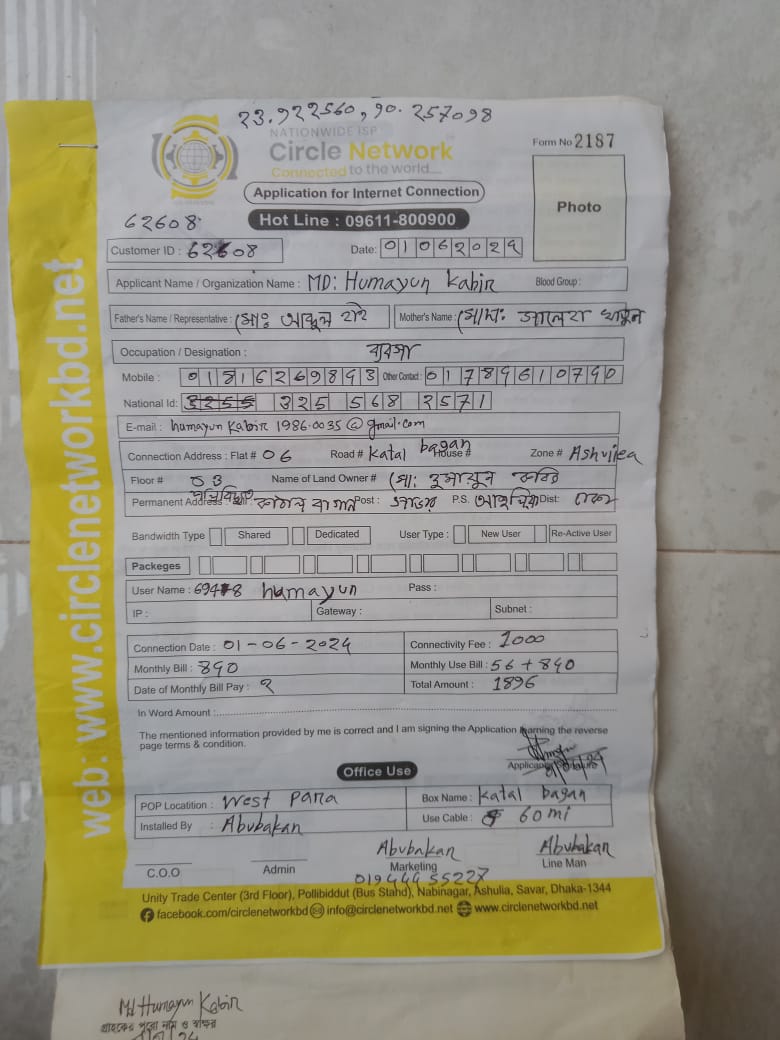 23.922560, 90.257098
NATIONWIDE ISP
Circle Network
Connected to the world....
Form No 2187
Application for Internet Connection
Photo
62608
Hot Line : 09611-800900
Customer ID : 62608 Date: 01062024
Applicant Name / Organization Name : MD: Humayun Kabir Blood Group :
Father's Name / Representative : মোঃ আব্দুল হাই Mother's Name : মোসাঃ জালেহা খাতুন
Occupation / Designation : ব্যবসা
Mobile : 01816269843 Other Contact : 01784610740
National Id: 3255 325 568 2571
E-mail : humayun Kabir 1986.0035@gmail.com
Connection Address : Flat # 06 Road # Katal bagan House # Zone # Ashvilea
Floor # 03 Name of Land Owner # মোঃ হুমায়ুন কবির
Permanent Address পল্লিবিদ্যুৎ কাঠাল বাগান Post : সাভার P.S. আশুলিয়া Dist: ঢাকা
Bandwidth Type Shared Dedicated User Type : New User Re-Active User
Packeges
User Name : 69478 humayun Pass :
IP : Gateway : Subnet :
Connection Date : 01-06-2024 Connectivity Fee : 1000
Monthly Bill : 840 Monthly Use Bill : 56 + 840
Date of Monthly Bill Pay : 2 Total Amount : 1896
In Word Amount :
The mentioned information provided by me is correct and I am signing the Application learning the reverse
page terms & condition.
Office Use
POP Locatition : West Para Box Name : Katal bagan
Installed By : Abubakan Use Cable : 60 mi
Abubakan Abubakan
C.O.O Admin Marketing Line Man
01944455227
Unity Trade Center (3rd Floor), Pollibiddut (Bus Stand), Nabinagar, Ashulia, Savar, Dhaka-1344
facebook.com/circlenetworkbd info@circlenetworkbd.net www.circlenetworkbd.net
web: www.circlenetworkbd.net
Md Humayun Kabir
গ্রাহকের পুরো নাম ও স্বাক্ষর